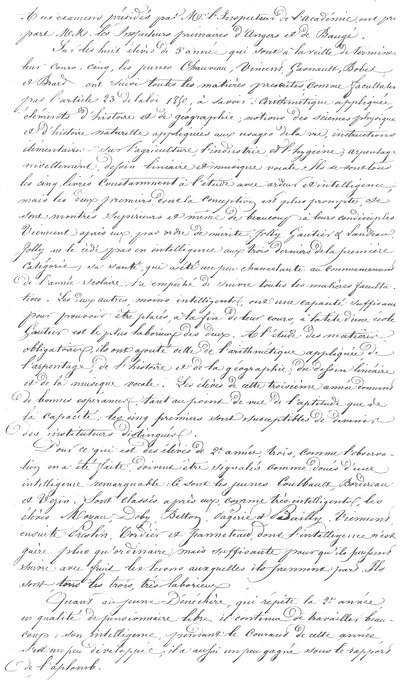 Aux examens présidés par Mr. l'Inspecteur de l'Académie, ont pris
part M.M. les Inspecteurs primaires d'Angers et de Baugé.
Sur les huit élèves de 3e année qui sont à la veille de terminer
leur cours, cinq, les jeunes Chauveau, Vincent, Gasnault, Bobet
et Brard ont suivi toutes les matières prescrites, comme facultatives
par l'article 23 de la loi 1850, à savoir: Arithmétique appliquée,
éléments d'histoire et de géographie, notions des sciences physiques
et d'histoire naturelle appliquées aux usages de la vie, instructions
élémentaires sur l'agriculture l'industrie et l'hygiène, arpentage
nivellement, dessin linéaire et musique vocale. Ils se sont tous
les cinq livrés constamment à l'étude avec ardeur et intelligence
mais les deux premiers dont la conception est plus prompte, se
sont montrés supérieurs et même de beaucoup à leurs condisciples
Viennent après eux, par ordre de mérite, Jolly Gautier & Landeau
Jolly ne le cède pas en intelligence aux trois derniers de la première
catégorie, sa santé, qui a été un peu chancelante au commencement
de l'année scolaire, l'a empêché de suivre toutes les matières faculta-
tives. Les deux autres, moins intelligents, ont une capacité suffisante
pour pouvoir être placés, à la fin de leur cours, à la tête d'une école
Gautier est le plus laborieux des deux. A l'étude des matières
obligatoires, ils ont ajouté celle de l'arithmétique appliquée, de
l'arpentage, de l'histoire et de la géographie, du dessin linéaire
et de la musique vocale. Les élèves de cette troisième année donnent
de bonnes espérances tant au point de vue de l'aptitude que de
la capacité, les cinq premiers sont susceptibles de devenir
des instituteurs distingués.
Pour ce qui est des élèves de 2e année, trois, comme l'observa-
tion en a été faite, doivent être signalés comme doués d'une
intelligence remarquable. Ce sont les jeunes Coulbault, Bordereau
et Pezin. Sont classés après eux, comme très intelligents, les
élèves Moreau, Doby Betton, et Bailly. Viennent
ensuite Breslin, Cordier et Panneteau, dont l'intelligence n'est
guère plus qu'ordinaire, mais suffisante pour qu'ils puissent
suivre avec fruit les leçons auxquelles ils prennent part. Ils
sont tous les trois, très laborieux.
Quant au jeune Dénéchère, qui répète la 2e année
en qualité de pensionnaire libre, il continue de travailler beau-
coup; son intelligence, pendant le courant de cette année
s'est un peu développée; il a aussi un peu gagné sous le rapport
de l'aplomb.